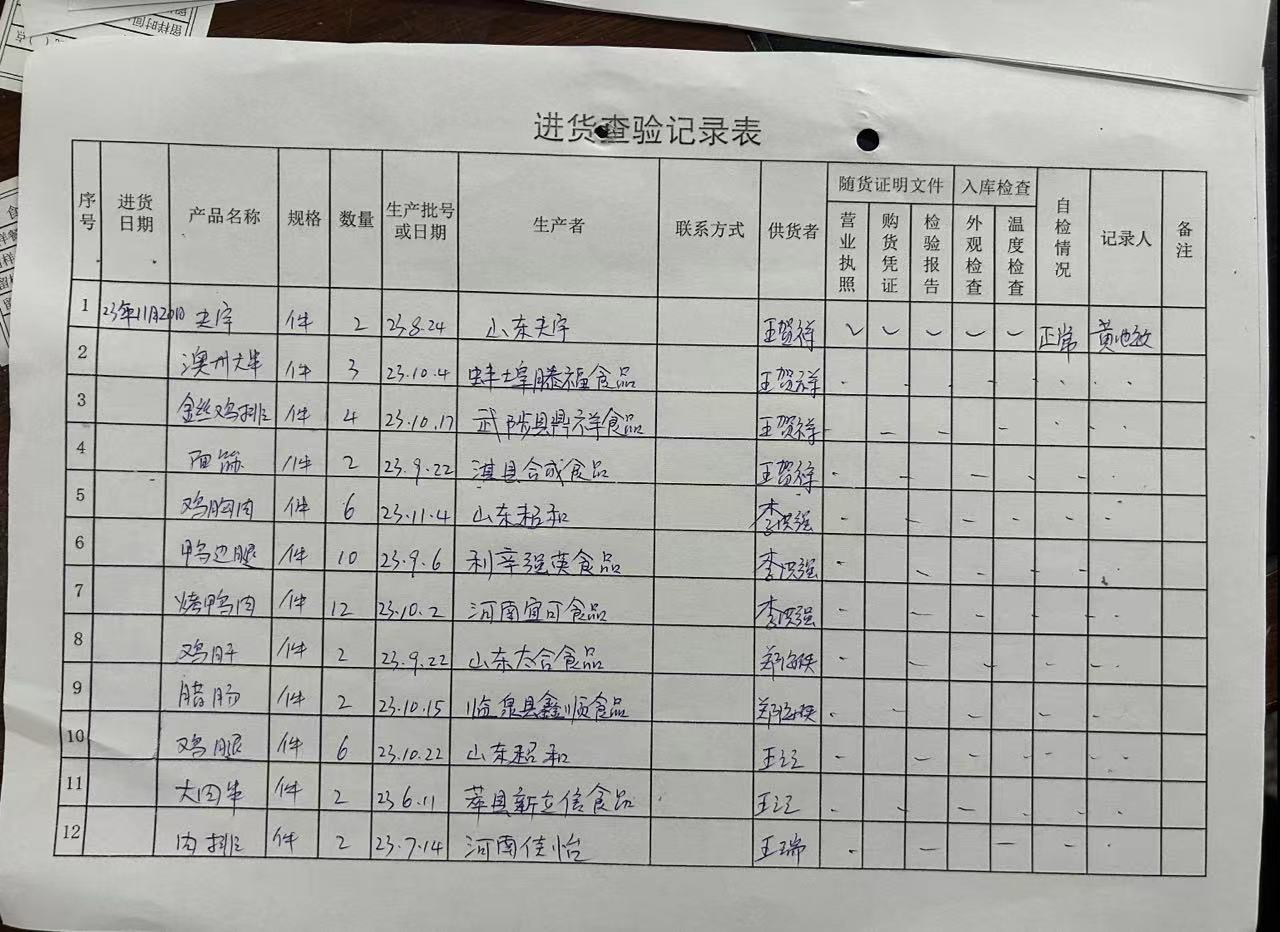 进货查验记录表
序号 进货日期 产品名称 规格 数量 生产批号或日期 生产者 联系方式 供货者 随货证明文件 营业执照 购货凭证 检验报告 入库检查 外观检查 温度检查 自检情况 记录人 备注
1 23年11月20日 件 2 23.8.24 山东 王贺祥 ✓ ✓ ✓ ✓ ✓ 正常
2 澳州大串 件 3 23.10.4 蚌埠腾福食品 王贺祥
3 金丝鸡排 件 4 23.10.17 武陟县鼎祥食品 王贺祥
4 面筋 件 2 23.9.22 淇县合成食品 王贺祥
5 鸡胸肉 件 6 23.11.4 山东超和 李洪强
6 鸭边腿 件 10 23.9.6 利辛强英食品 李洪强
7 烤鸭肉 件 12 23.10.2 河南宜可食品 李洪强
8 鸡肝 件 2 23.9.22 山东太合食品
9 腊肠 件 2 23.10.15 临泉县鑫顺食品
10 鸡腿 件 6 23.10.22 山东超和
11 件 2 23 6.11 莘县新立信食品
12 肉排 件 2 23.7.14 河南佳怡 王瑞
留样时间